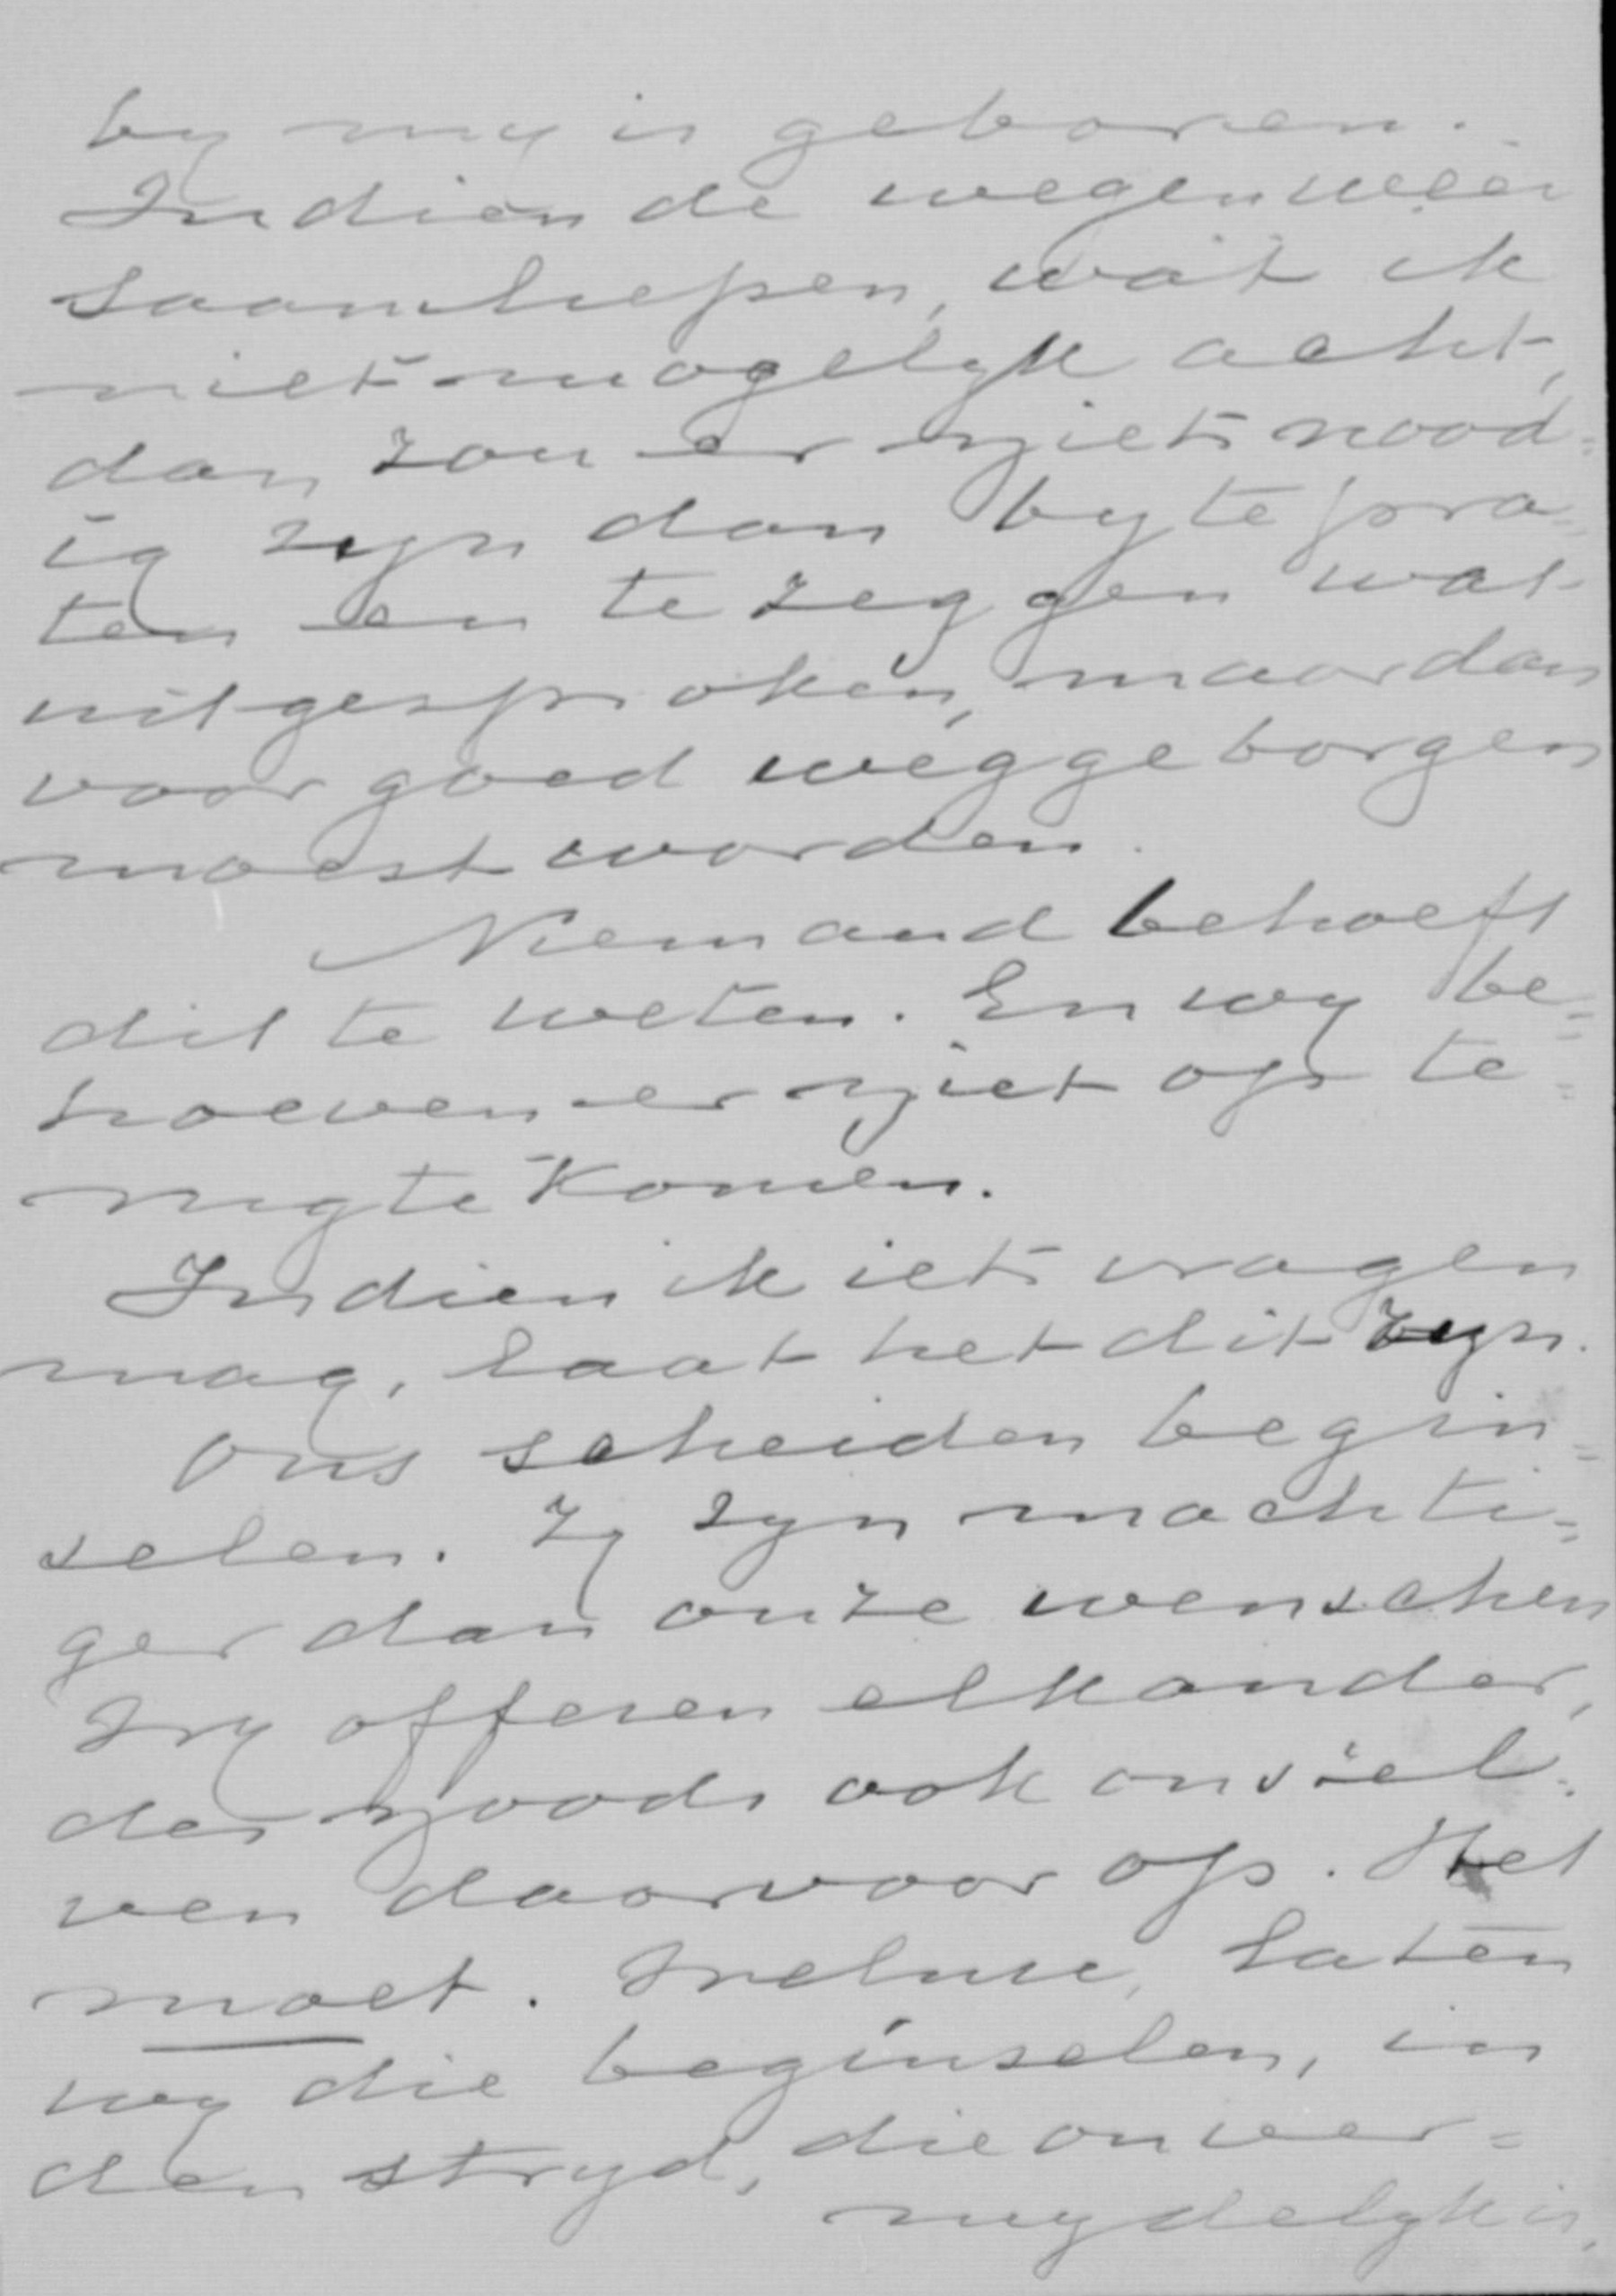 by my is geboren.
Indien de wegen weer
saamliepen, wat ik
niet mogelyk acht,
dan zou er niets nood=
ig zyn dan by te pra=
ten en te zeggen wat
uitgesproken, maar dan
voor goed weggeborgen
moest worden.
Niemand behoeft
dit te weten. En wy be=
hoeven er niet op te=
rug te komen.
Indien ik iets vragen
mag, laat het dit zyn.
Ons scheiden begin=
selen. Zy zyn machti=
ger dan onze wenschen
Wy offeren elkander,
des noods ook onszel=
ven daarvoor op. Het
moet. Welnu, laten
wy die beginselen, in
den stryd, die onver=
mydelyk is,